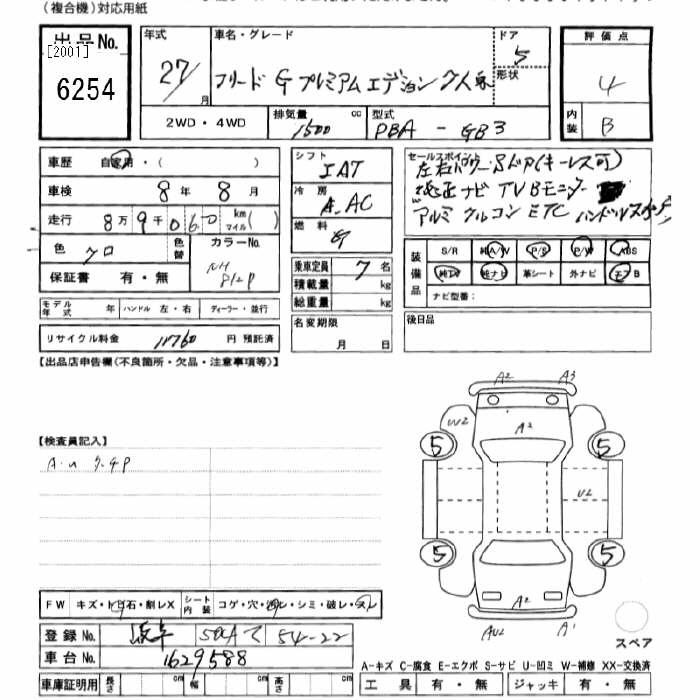 (複合機)対応用紙
出品No.
[2001]
6254
年式
27
月
車名・グレード
フリード G プレミアムエディション 7人乗
ドア
5
形状
評価点
4
内装
B
2WD・4WD
排気量
1500
cc
型式
PBA - GB3
車歴
自家用・( )
車検
8 年 8 月
走行
8万 9千 0 6 0 km マイル ( )
色
クロ
色替
カラーNo.
NH
812P
保証書
有・無
シフト
IAT
冷房
A.AC
燃料
G
乗車定員
7 名
積載量
kg
総重量
kg
セールスポイント
左右パワーSドア(キーレス可)
純正ナビ TV Bモニター
アルミ クルコン ETC ハンドルスイッチ
装備品
S/R
純A/W
P/S
P/W
ABS
純TV
純ナビ
革シート
外ナビ
エアB
ナビ型番:
モデル年式
年
ハンドル 左・右
ディーラー・並行
リサイクル料金
11760
円 預託済
名変期限
月 日
後日品
【出品店申告欄(不良箇所・欠品・注意事項等)】
【検査員記入】
FW
キズ・トビ石・割レX
シート内装
コゲ・穴・汚レ・シミ・破レ・スレ
登録No.
504
54-22
車台No.
1629588
車庫証明用
長さ
cm
幅
cm
高さ
cm
A2
A3
W2
A2
5
5
U2
5
5
A2
AU2
A1
スペア
A-キズ C-腐食 E-エクボ S-サビ U-凹ミ W-補修 XX-交換済
工具
有・無
ジャッキ
有・無